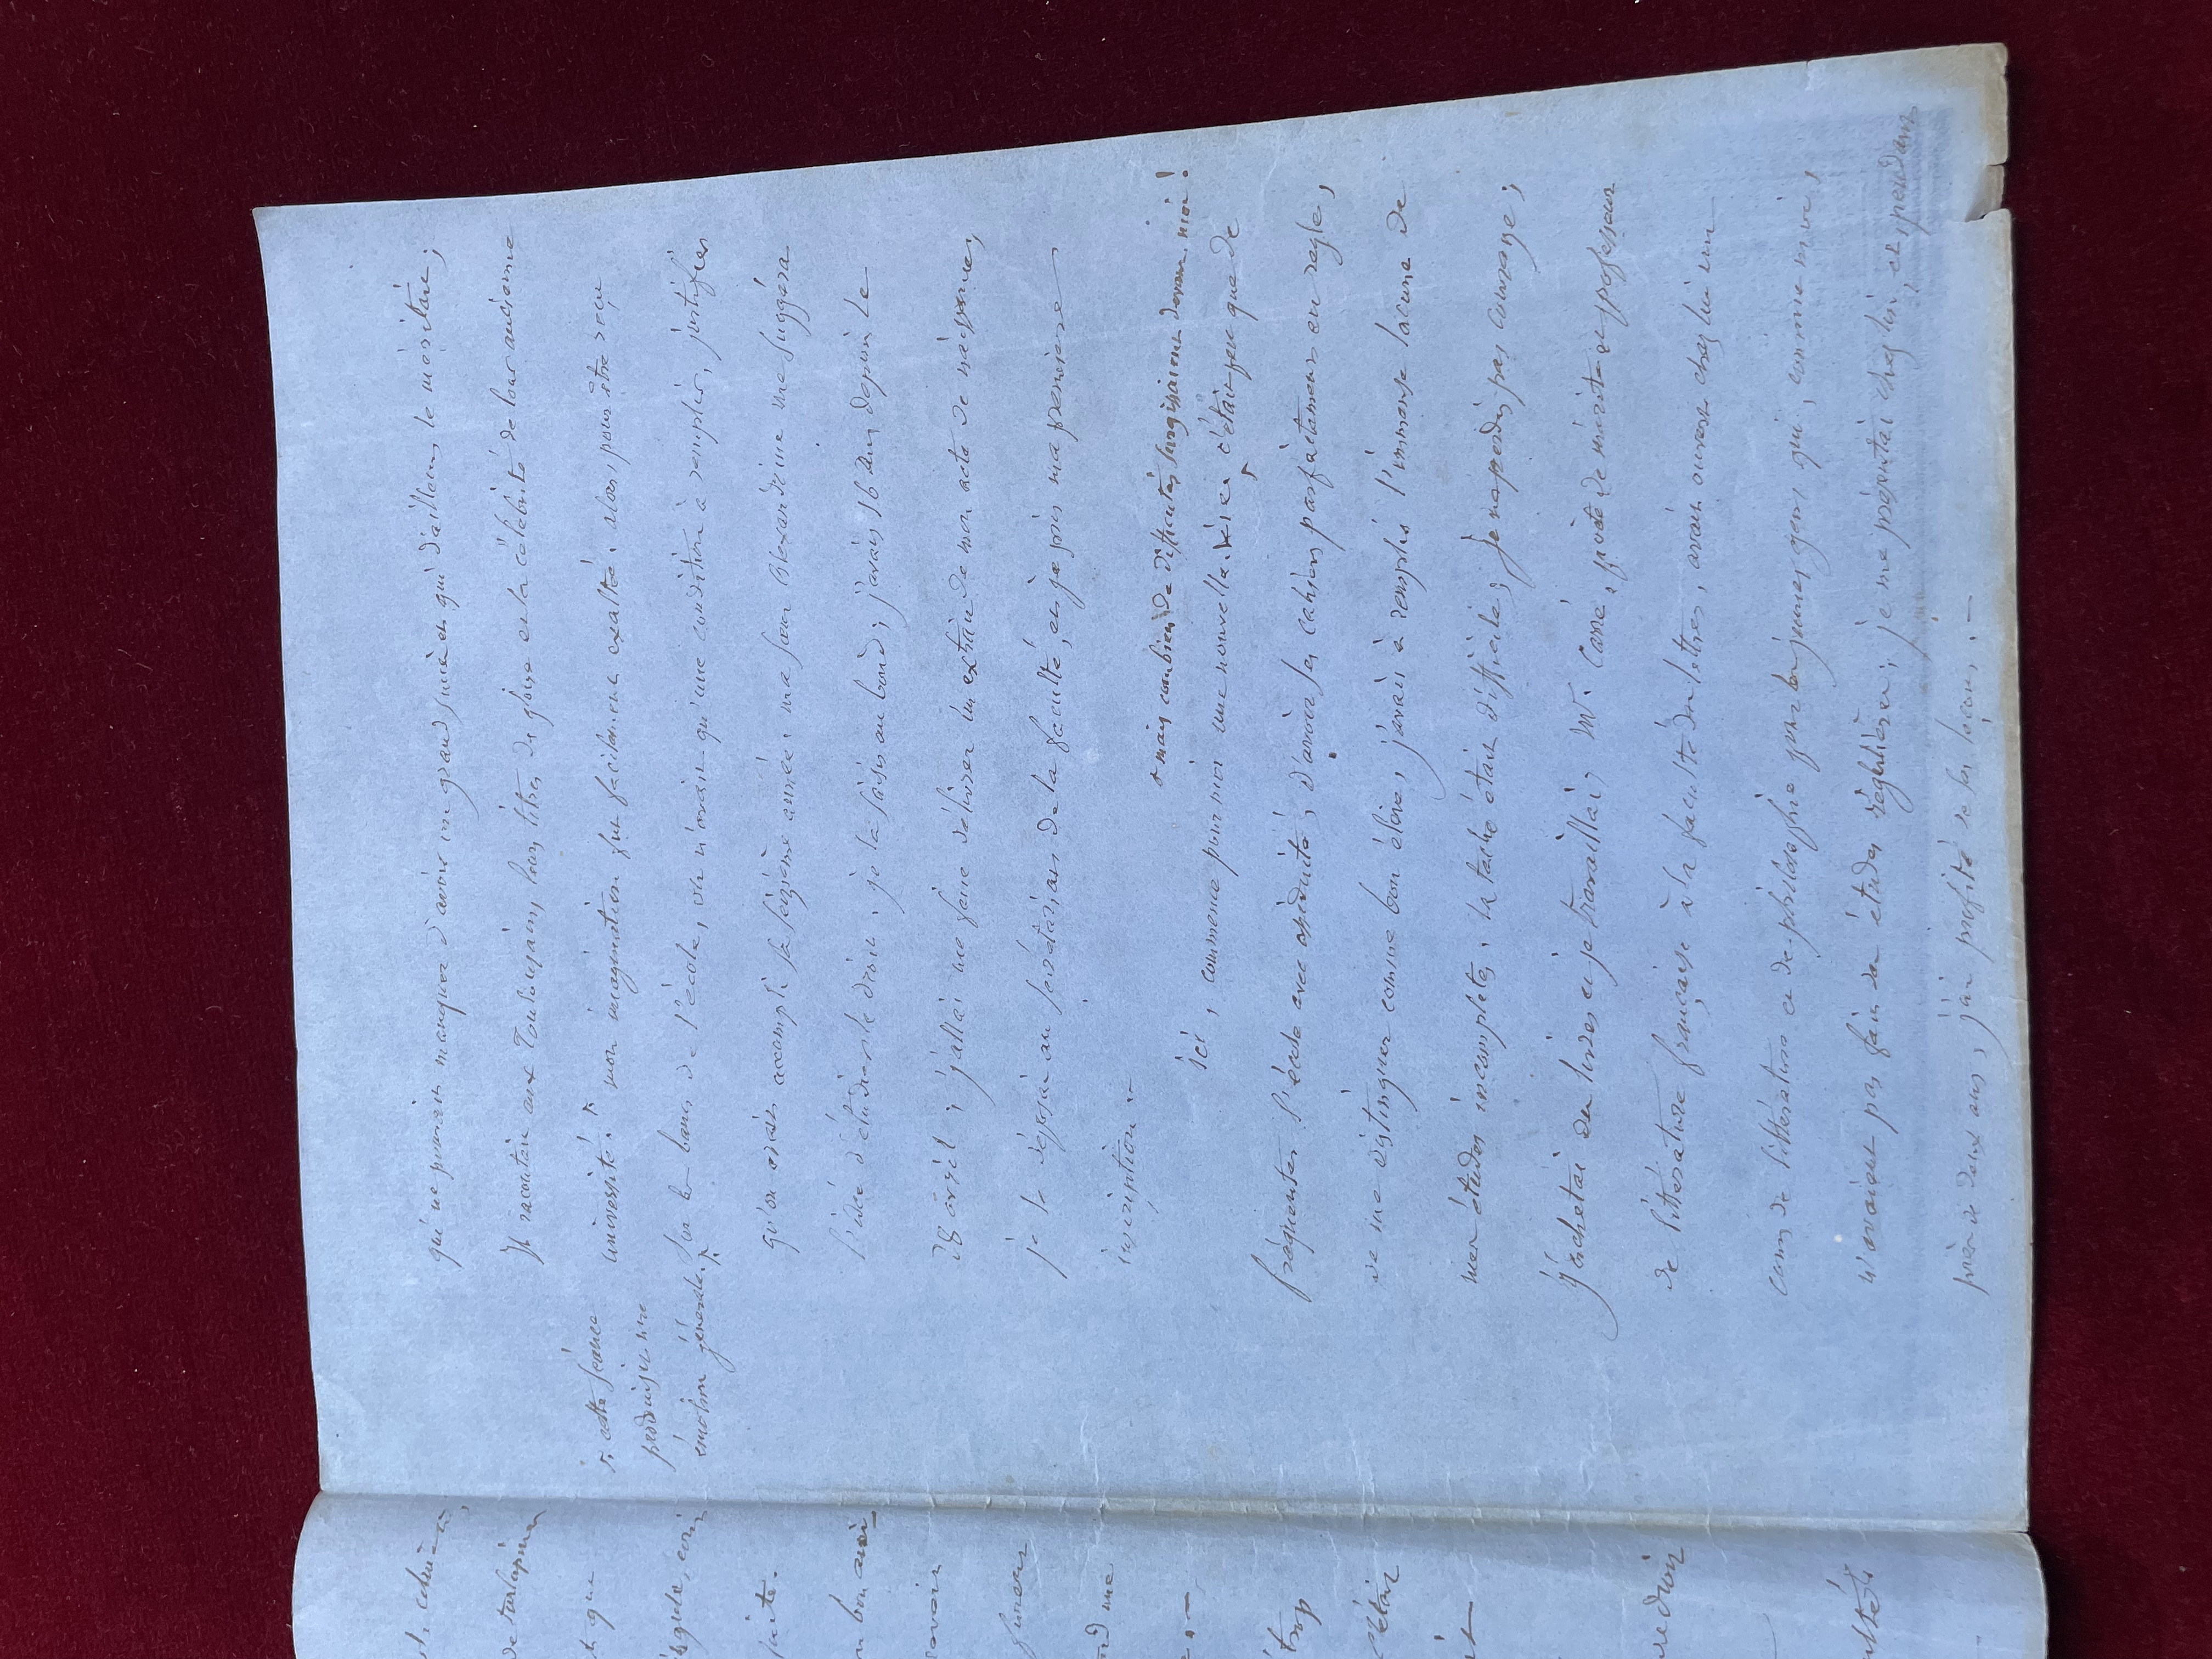 qui ne pouvait manquer d'avoir un grand succès et qui d'ailleurs le méritait ;
Il racontait aux Toulousains, leurs titres de gloire et la célébrité de leur ancienne
université. x mon imagination fut facilement exaltée. alors pour être reçu
x. cette séance
produisit une
émotion générale. x
sur les bancs de l'école, on n'avait qu'une condition à remplir, justifier
qu'on avait accompli sa seizième année. ma sœur Alexandrine me suggéra
l'idée d'étudier le droit. je la saisis au bond ; j'avais 16 ans depuis le
28 avril ; j'allai me faire délivrer un extrait de mon acte de naissance,
je le déposai au secrétariat de la faculté, et je pris ma première
inscription. -
x mais combien de difficultés surgissaient devant moi !
ici, commence pour moi une nouvelle vie. x c'était peu que de
fréquenter l'école avec assiduité, d'avoir ses cahiers parfaitement en règle,
de me distinguer comme bon élève, j'avais à remplir l'immense lacune de
mes études incomplètes. la tâche était difficile ; je ne perdis pas courage ;
j'achetai des livres et je travaillai ; M. Carré, poète de mérite et professeur
de littérature française à la faculté des lettres, avait ouvert chez lui un
cours de littérature et de philosophie pour les jeunes gens qui, comme moi,
n'avaient pas fait des études régulières ; je me présentai chez lui, et, pendant
près de deux ans, j'ai profité de ses leçons. -
de turlupiner
et que
faite.
un bon ami
savoir
trop
c'était